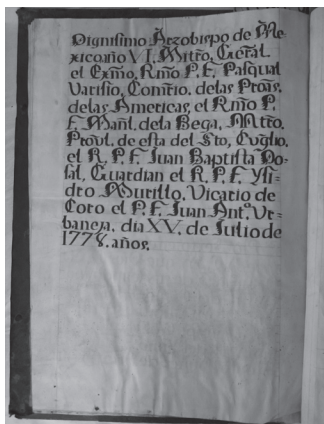 Dignisimo Arzobispo de Me-
xicoaño VI. Mitrō, Gēral
el Exmō, Rmō P. F. Pasqual
Varisio, Comrīo. delas Proās,
delas Americas, el Rmō P.
F. Manl. dela Bega, Mtro.
Provl. de esta del Sto,
el R. P. F. Juan Baptista Do-
sal, Guardian el R. P. F. Ysi=
dro Murillo, Vicario de
Coro el P. F. Juan Anto. Ur=
baneja, dia XV. de Julio de
1778. años.